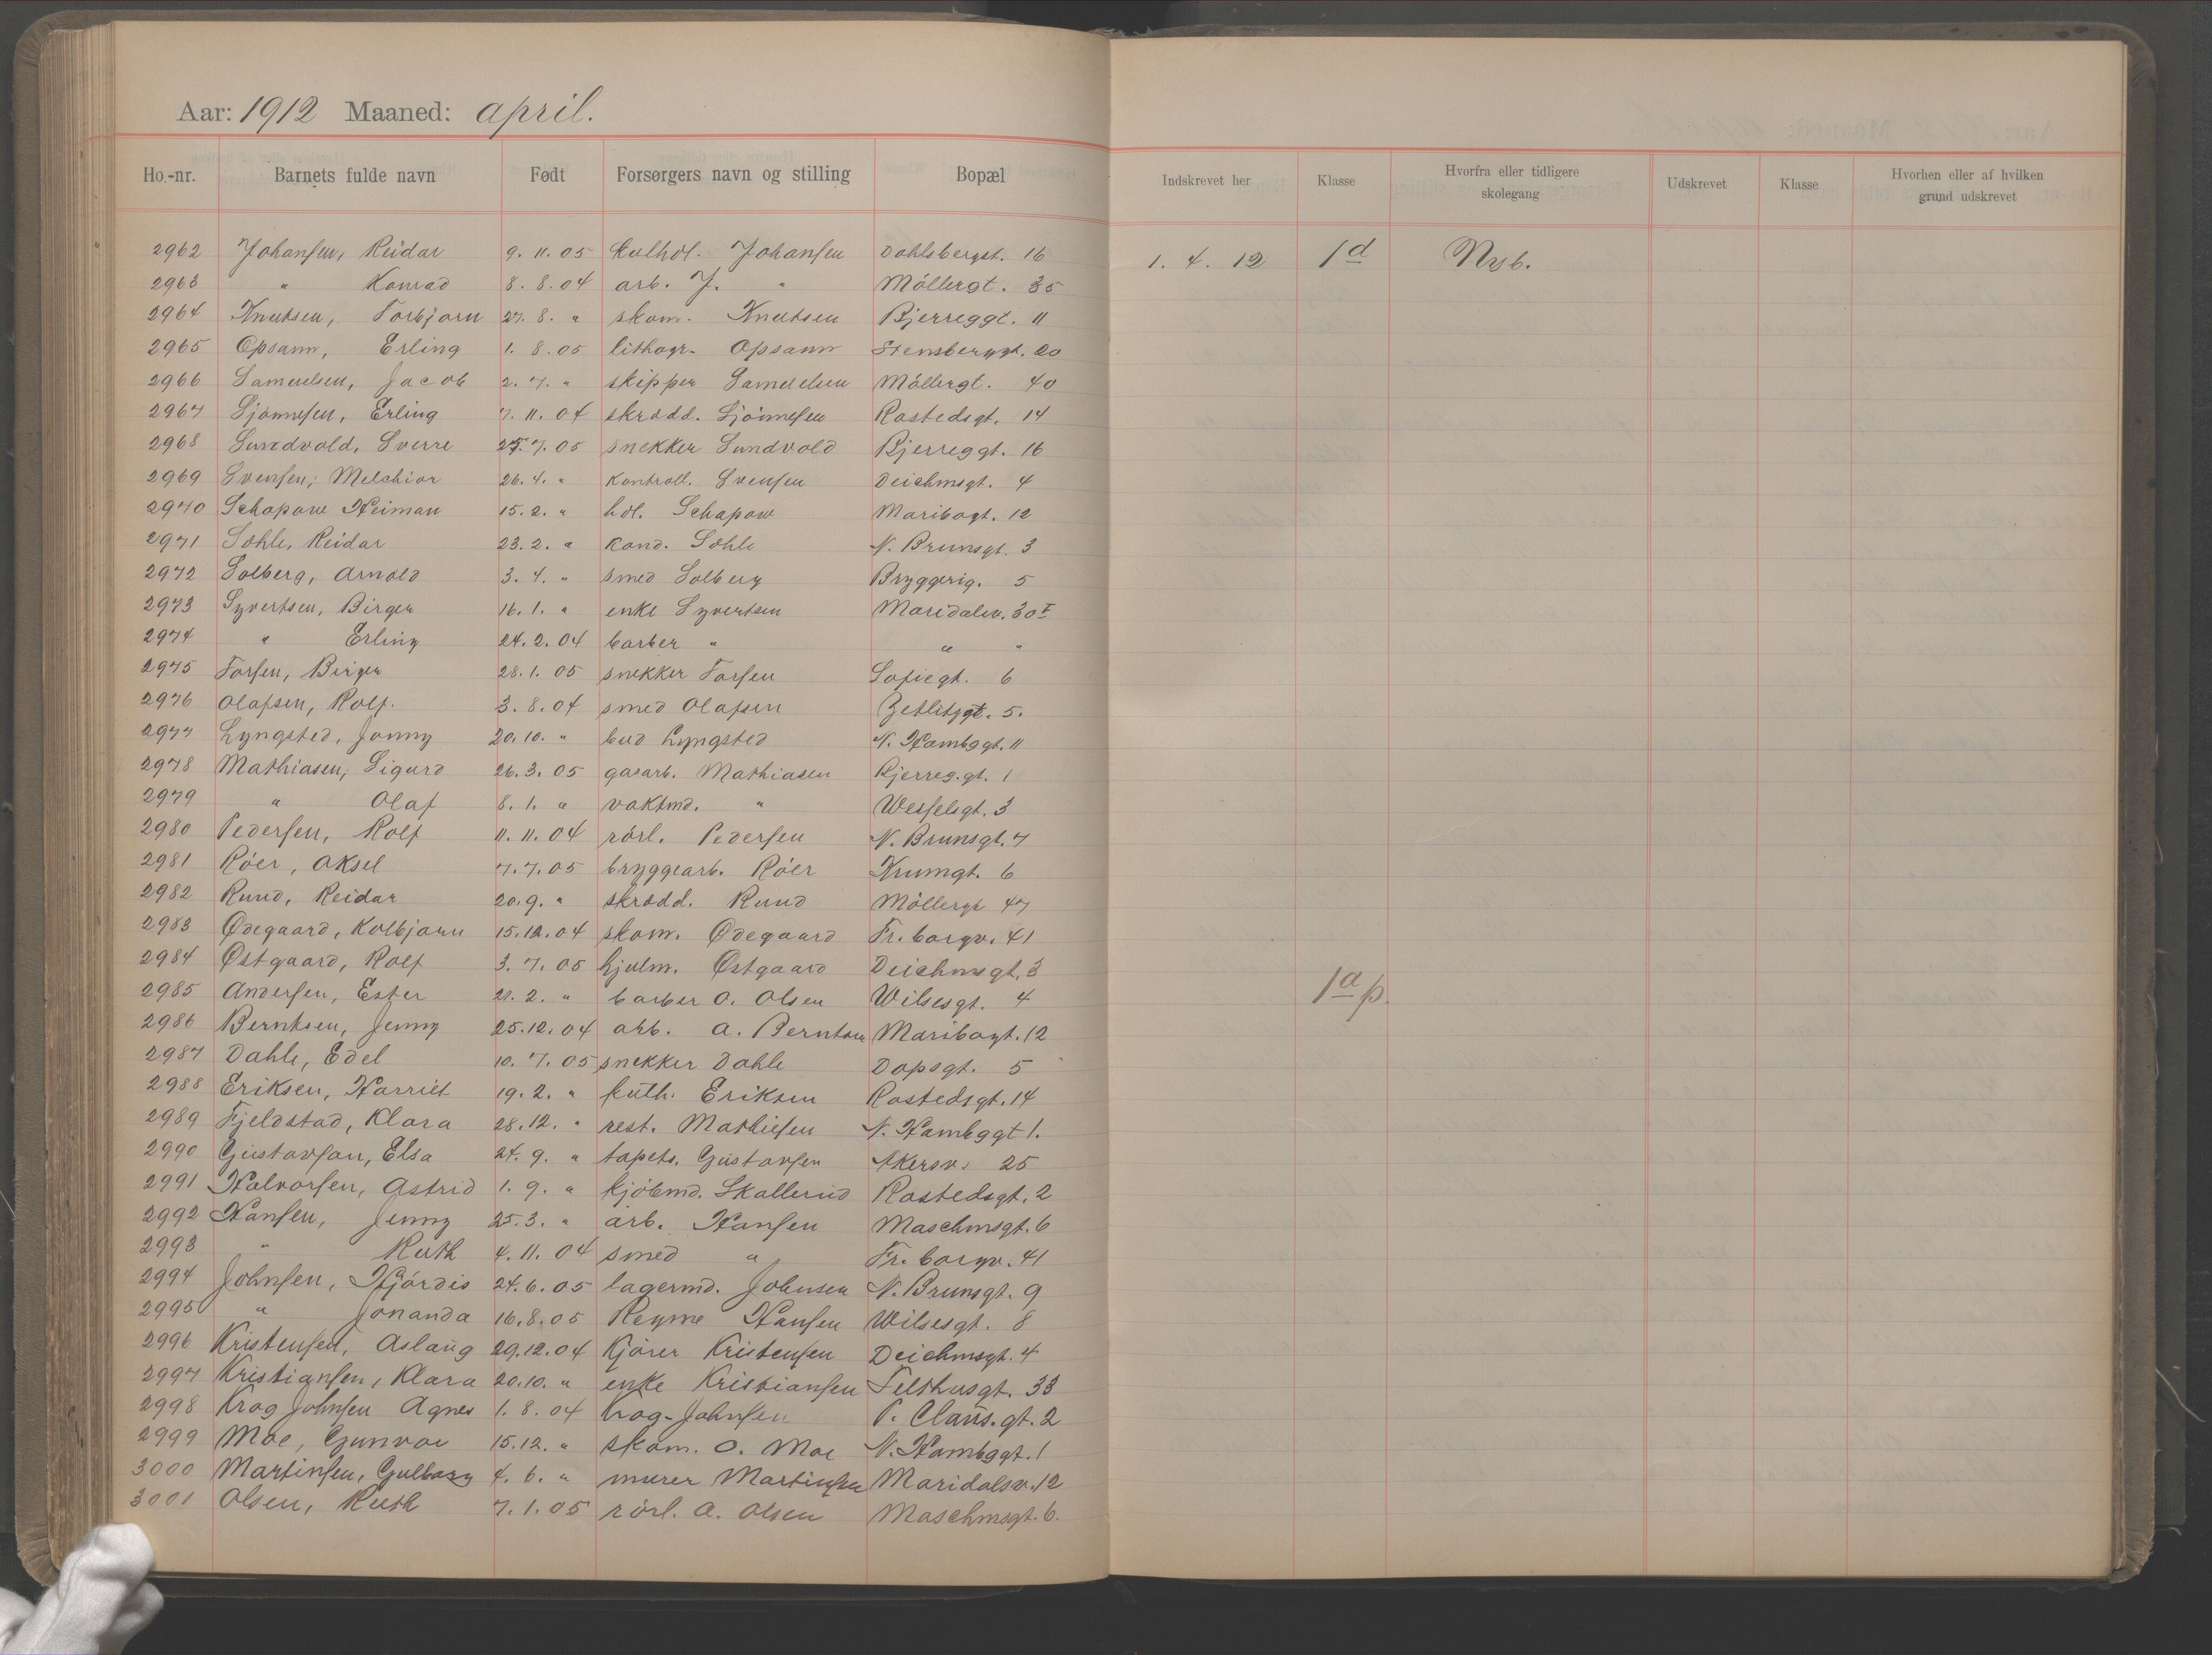 Aar: 1912 Maaned: april.
Ho.-nr. Barnets fulde navn Født Forsørgers navn og stilling Bopæl Indskrevet her Klasse Hvorfra eller tidligere skolegang Udskrevet Klasse Hvorhen eller af hvilken grund udskrevet
2962 Johansen, Reidar 9.11.05 kulhdl. Johansen Dahlsbergst. 16 1.4.12 1d Nyb.
2963 " Konrad 8.8.04 arb. J. " Möllergt. 35
2964 Knutsen, Torbjørn 27.8. " skom. Knutsen Bjerreggt. 11
2965 Opsann, Erling 1.8.05 lithogr. Opsann Stensberggt. 20
2966 Samuelsen, Jacob 2.7. " skipper Samuelsen Möllergt. 40
2967 Sjönnesen, Erling 7.11.04 skrædd. Sjönnesen Rostedsgt. 14
2968 Sundvold, Sverre 25.7.05 snekker Sundvold Bjerreggt. 16
2969 Svensen, Melchior 26.4. " kontroll. Svensen Deichmsgt. 4
2970 Schapow Heiman 15.2. " hdl. Schapow Maribogt. 12
2971 Sohle, Reidar 23.2. " kand. Sohle N. Brunsgt. 3
2972 Solberg, Arnold 3.4. " smed Solberg Bryggerig. 5
2973 Syvertsen, Birger 16.1. " enke Syvertsen Maridalsv. 30 I
2974 " Erling 24.2.04 barber " " "
2975 Torsen, Birger 28.1.05 snekker Torsen Sofiegt. 6
2976 Olafsen, Rolf. 3.8.04 smed Olafsen Zetlitzgt. 5.
2977 Lyngsted, Jonny 20.10. " bud Lyngsted N. Hambggt. 11
2978 Mathiasen, Sigurd 26.3.05 gasarb. Mathiasen Bjerreg.gt. 1
2979 " Olaf 8.1. " vaktmd. " Wesselsgt. 3
2980 Pedersen, Rolf 11.11.04 rörl. Pedersen N. Brunsgt. 7
2981 Röer, Aksel 7.7.05 bryggearb. Röer Krumgt. 6
2982 Rund, Reidar 20.9. " skrædd. Rund Möllergt 47
2983 Ødegaard, Kolbjørn 15.12.04 skom. Ødegaard Fr. borgv. 41
2984 Østgaard, Rolf 3.7.05 hjulm. Østgaard Deichmsgt. 3
2985 Andersen, Ester 21.2. " barber O. Olsen Wilsesgt. 4 1a p.
2986 Berntsen, Jenny 25.12.04 arb. A. Berntsen Maribogt. 12
2987 Dahle, Edel 10.7.05 snekker Dahle Dopsgt. 5
2988 Eriksen, Harriet 19.2. " Eriksen Rostedsgt. 14
2989 Fjeldstad, Klara 28.12. " rest. Mathisen N. Hambggt 1.
2990 Gustavsen, Elsa 24.9. " tapets. Gustavsen Akersv. 25
2991 Halvorsen, Astrid 1.9. " kjöbmd. Skallerud Rostedsgt. 2
2992 Hansen, Jenny 25.3. " arb. Hansen Maschmsgt. 6
2993 " Ruth 4.11.04 smed " Fr. borgv. 41
2994 Johnsen, Hjördis 24.6.05 lagermd. Johnsen N. Brunsgt. 9
2995 " Jonanda 16.8.05 Hansen Wilsesgt. 8
2996 Kristensen, Aslaug 29.12.04 Kjører Kristensen Deichmsgt. 4
2997 Kristiansen, Klara 20.10. " enke Kristiansen Telthusgt. 33
2998 Krag Johnsen Agnes 1.8.04 Krag-Johnsen P. Claus.gt. 2
2999 Moe, Gunvor 15.12. " skom. O. Moe N. Hambggt. 1
3000 Martinsen, Gulborg 4.6. " murer Martinsen Maridalsv. 12
3001 Olsen, Ruth 7.1.05 rörl. A. Olsen Maschmsgt. 6.